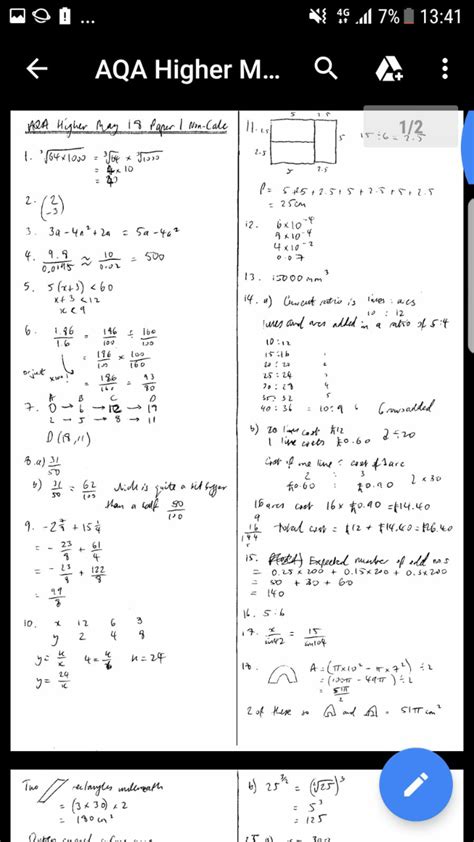 4G 7% 13:41
AQA Higher M...
1/2
AQA Higher May 18 Paper 1 Non-Calc
1. ³√64×1000 = ³√64 × ³√1000
= 4 × 10
= 40
2. (2 -3)
3. 3a - 4a² + 2a = 5a - 4a²
4. 9.8/0.0195 ≈ 10/0.02 = 500
5. 5(x+3) < 60
x+3 < 12
x < 9
6. 1.86/1.6 = 186/100 ÷ 160/100
= 186/100 × 100/160
= 186/160 = 93/80
7. A B C D
0 → 6 → 12 → 18
2 → 5 → 8 → 11
D (18, 11)
8. a) 31/50
b) 31/50 = 62/100 which is quite a bit bigger
than a half 50/100
9. -2 7/8 + 15 1/4
= -23/8 + 61/4
= -23/8 + 122/8
= 99/8
10. x 12 6 3
y 2 4 8
y = k/x 4 = k/6 k = 24
y = 24/x
11. 5 2.5
2.5 5 15 ÷ 6 = 2.5
2.5
5 2.5
P = 5+5+2.5+5+2.5+5+2.5
= 25cm
12. 6×10⁻⁴
9×10⁻⁴
4×10⁻²
0.07
13. 15000 mm³
14. a) Current ratio is limes : arcs
10 : 12
limes and arcs added in a ratio of 5:4
10 : 12
15 : 16
20 : 20
25 : 24
30 : 28
35 : 32
40 : 36 = 10 : 9
b) 20 limes cost £12
1 lime costs £0.60
÷20
Cost of one lime : cost of 1 arc
2 : 3
£0.60 : £0.90
× 30
16 arcs cost 16 × £0.90 = £14.40
Total cost = £12 + £14.40 = £26.40
15. Expected number of odd nos
= 0.25 × 200 + 0.15 × 200 + 0.3 × 200
= 50 + 30 + 60
= 140
16. 5:6
17. x/sin42 = 15/sin104
18. A = (π×10² - π×7²) ÷ 2
= (100π - 49π) ÷ 2
= 51π/2
2 of these so and = 51π cm²
Two rectangles underneath
= (3 × 30) × 2
= 180 cm²
b) 25^3/2 = (√25)³
= 5³
= 125